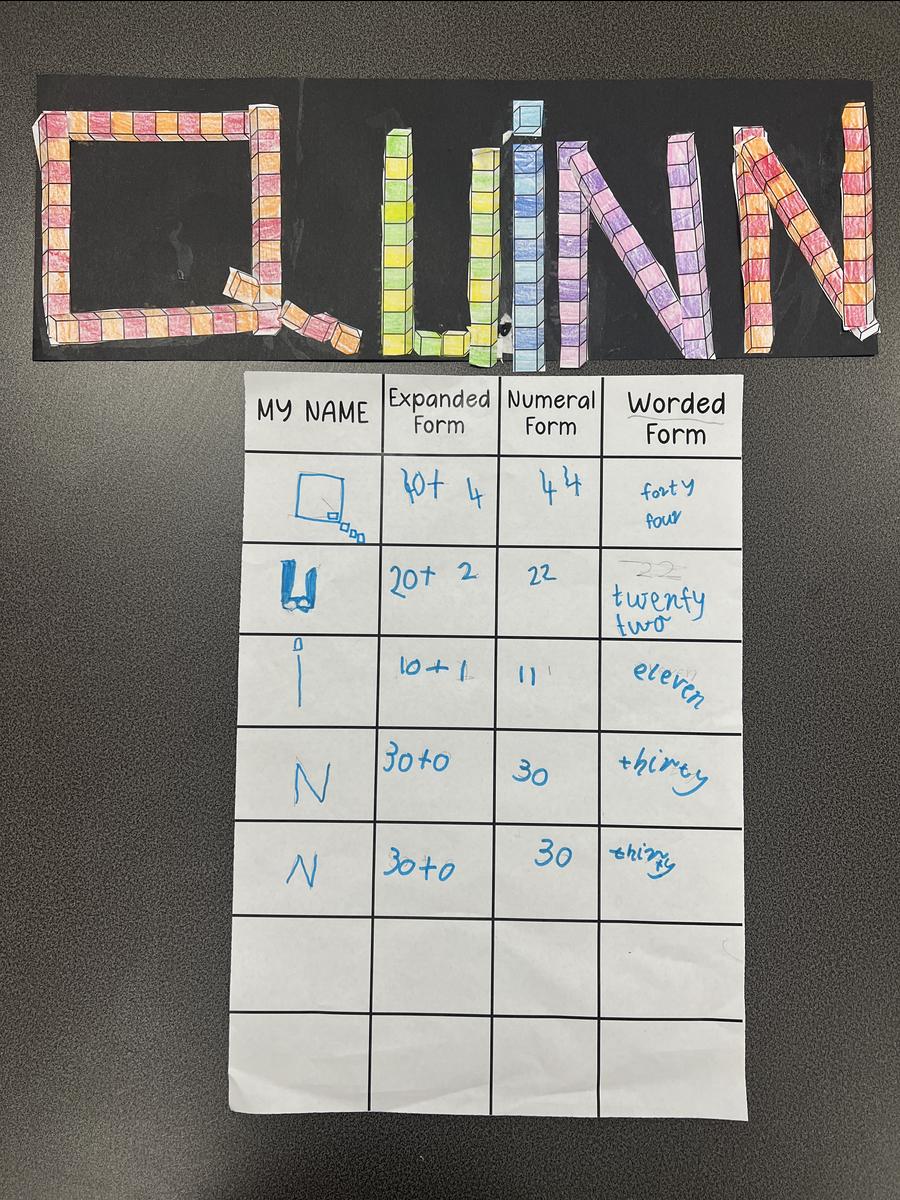 QUiNN
MY NAME Expanded Form Numeral Form Worded Form
Q 40+ 4 44 forty four
U 20+ 2 22 22 twenty two
i 10+1 11 eleven
N 30+0 30 thirty
N 30+0 30 thirty